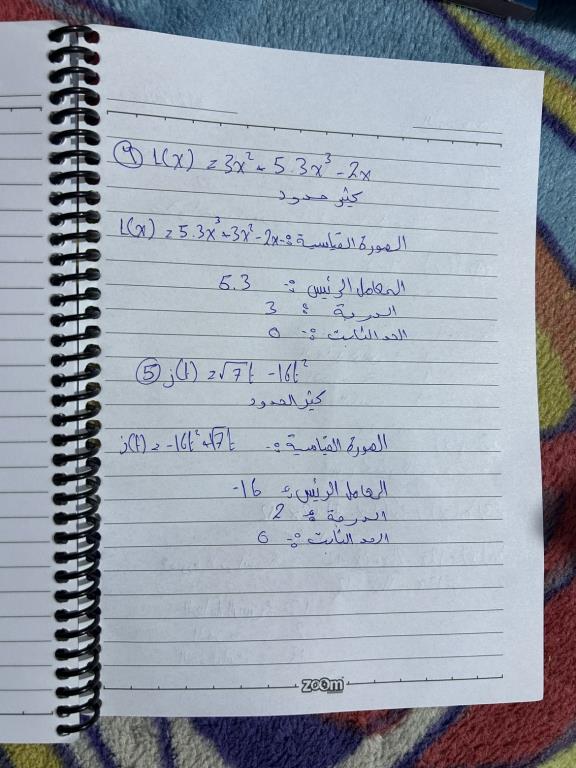 ④ L(x) = 3x² + 5.3x³ - 2x
كثير حدود
الصورة القياسية :- L(x) = 5.3x³ + 3x² - 2x
المعامل الرئيس :- 5.3
الدرجة : 3
الحد الثابت :- 0
⑤ j(t) = √7t - 16t²
كثير الحدود
الصورة القياسية :- j(t) = -16t² + √7t
المعامل الرئيس : -16
الدرجة : 2
الحد الثابت :- 0
zoom